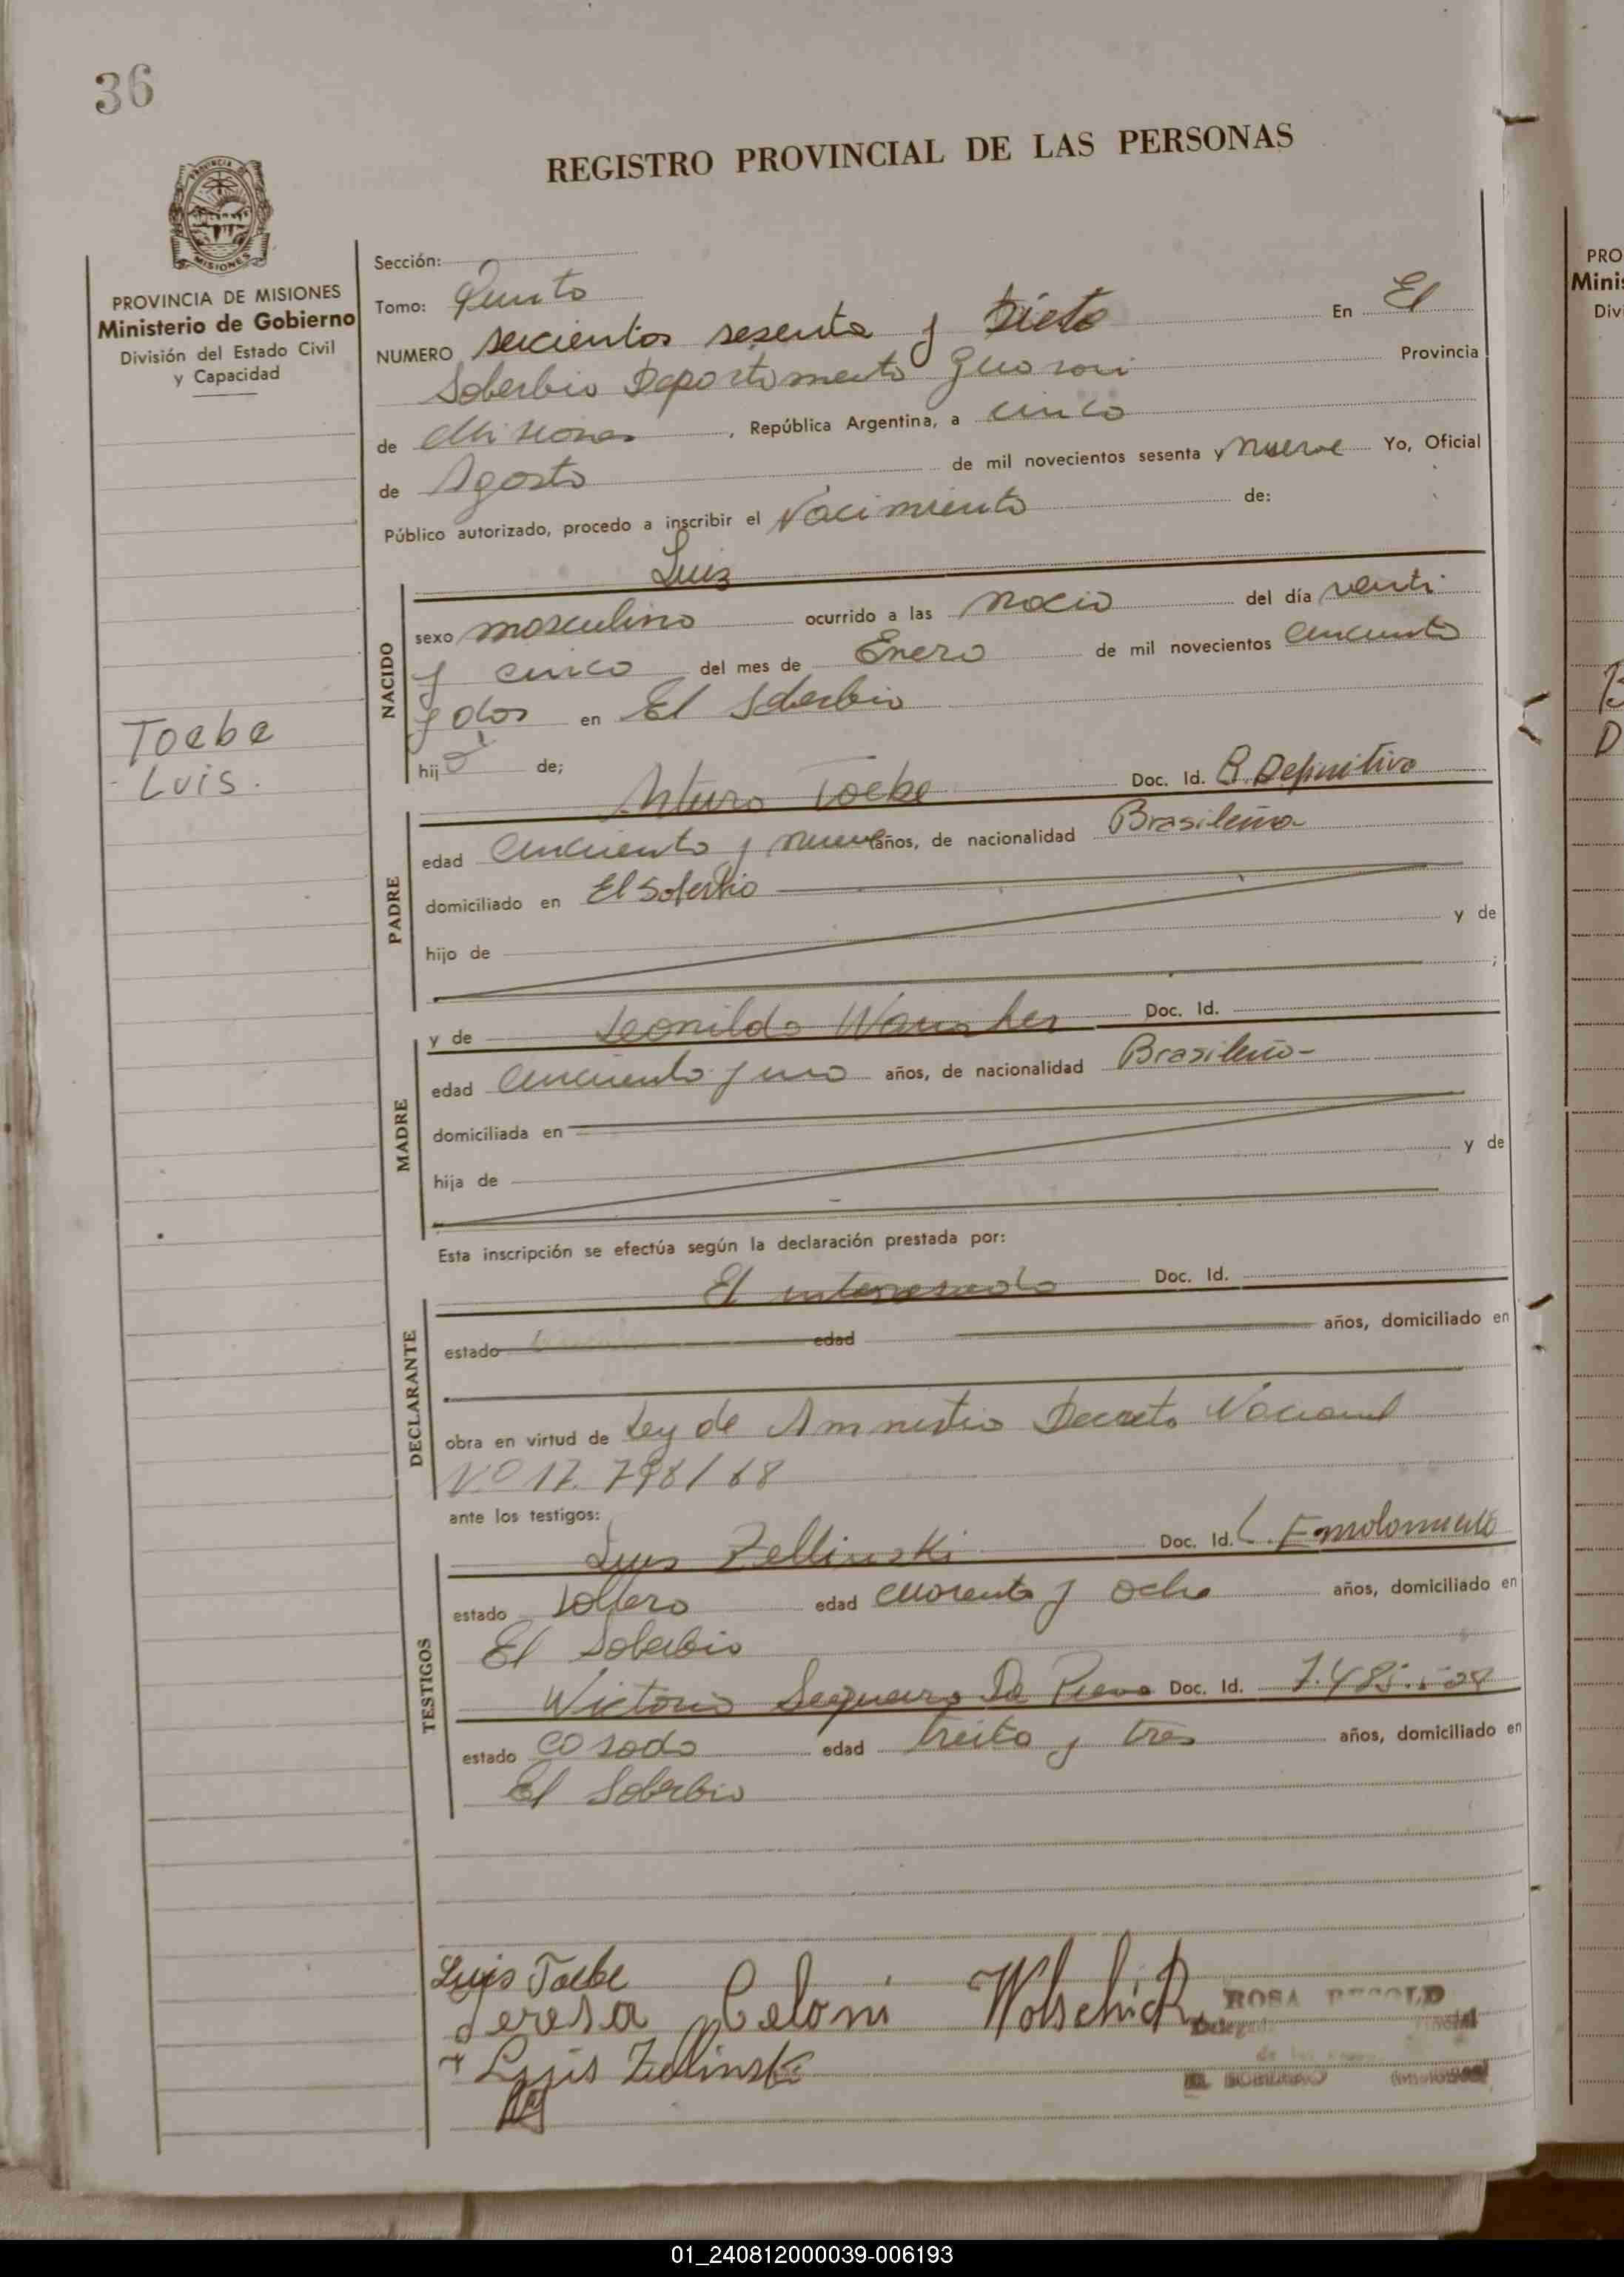 36
REGISTRO PROVINCIAL DE LAS PERSONAS
MISIONES
PROVINCIA DE MISIONES
Ministerio de Gobierno
División del Estado Civil
y Capacidad
Toebe
Luis.
Sección:
Tomo: Quinto
NUMERO seicientos sesenta y siete En El
Soberbio Departamento Guarani Provincia
de Misiones, República Argentina, a cinco
de Agosto de mil novecientos sesenta y nueve Yo, Oficial
Público autorizado, procedo a inscribir el Nacimiento de:
Luis
NACIDO
sexo masculino ocurrido a las nacio del día venti
y cinco del mes de Enero de mil novecientos cincuenta
y dos en El Soberbio
hijo de;
Arturo Toebe Doc. Id. R. Definitivo
PADRE
edad cincuenta y nueve años, de nacionalidad Brasileña
domiciliado en El Soberbio
hijo de y de
;
y de Leonilda Doc. Id.
MADRE
edad cincuenta y uno años, de nacionalidad Brasileña-
domiciliada en
hija de y de
Esta inscripción se efectúa según la declaración prestada por:
El interesado Doc. Id.
DECLARANTE
estado edad años, domiciliado en
obra en virtud de Ley de Amnistia Decreto Nacional
Nº 17.798/68
ante los testigos:
Luis Zellinski Doc. Id. L. Enrolamiento
TESTIGOS
estado soltero edad cuarenta y ocho años, domiciliado en
El Soberbio
Wictorio Sequeira Da Doc. Id. 7.485.
estado casado edad treita y tres años, domiciliado en
El Soberbio
Luis Toebe
Teresa Celoni Wolschick
Luis Zellinski
ROSA
EL SOBERBIO
PRO
Minis
Div
01_240812000039-006193